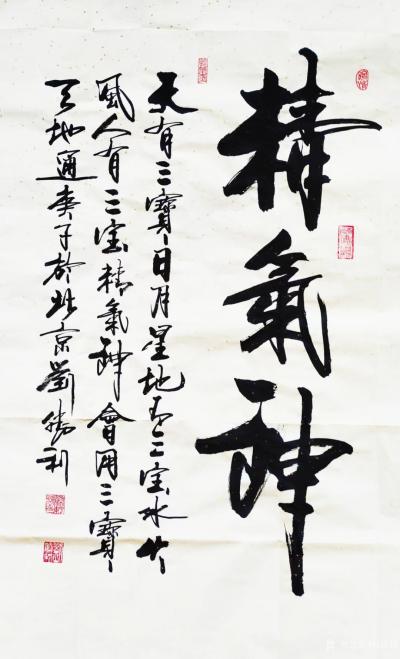 精氣神
天有三寶日月星地有三宝水火
風人有三宝精氣神會用三寶
天地通庚子於北京劉勝利